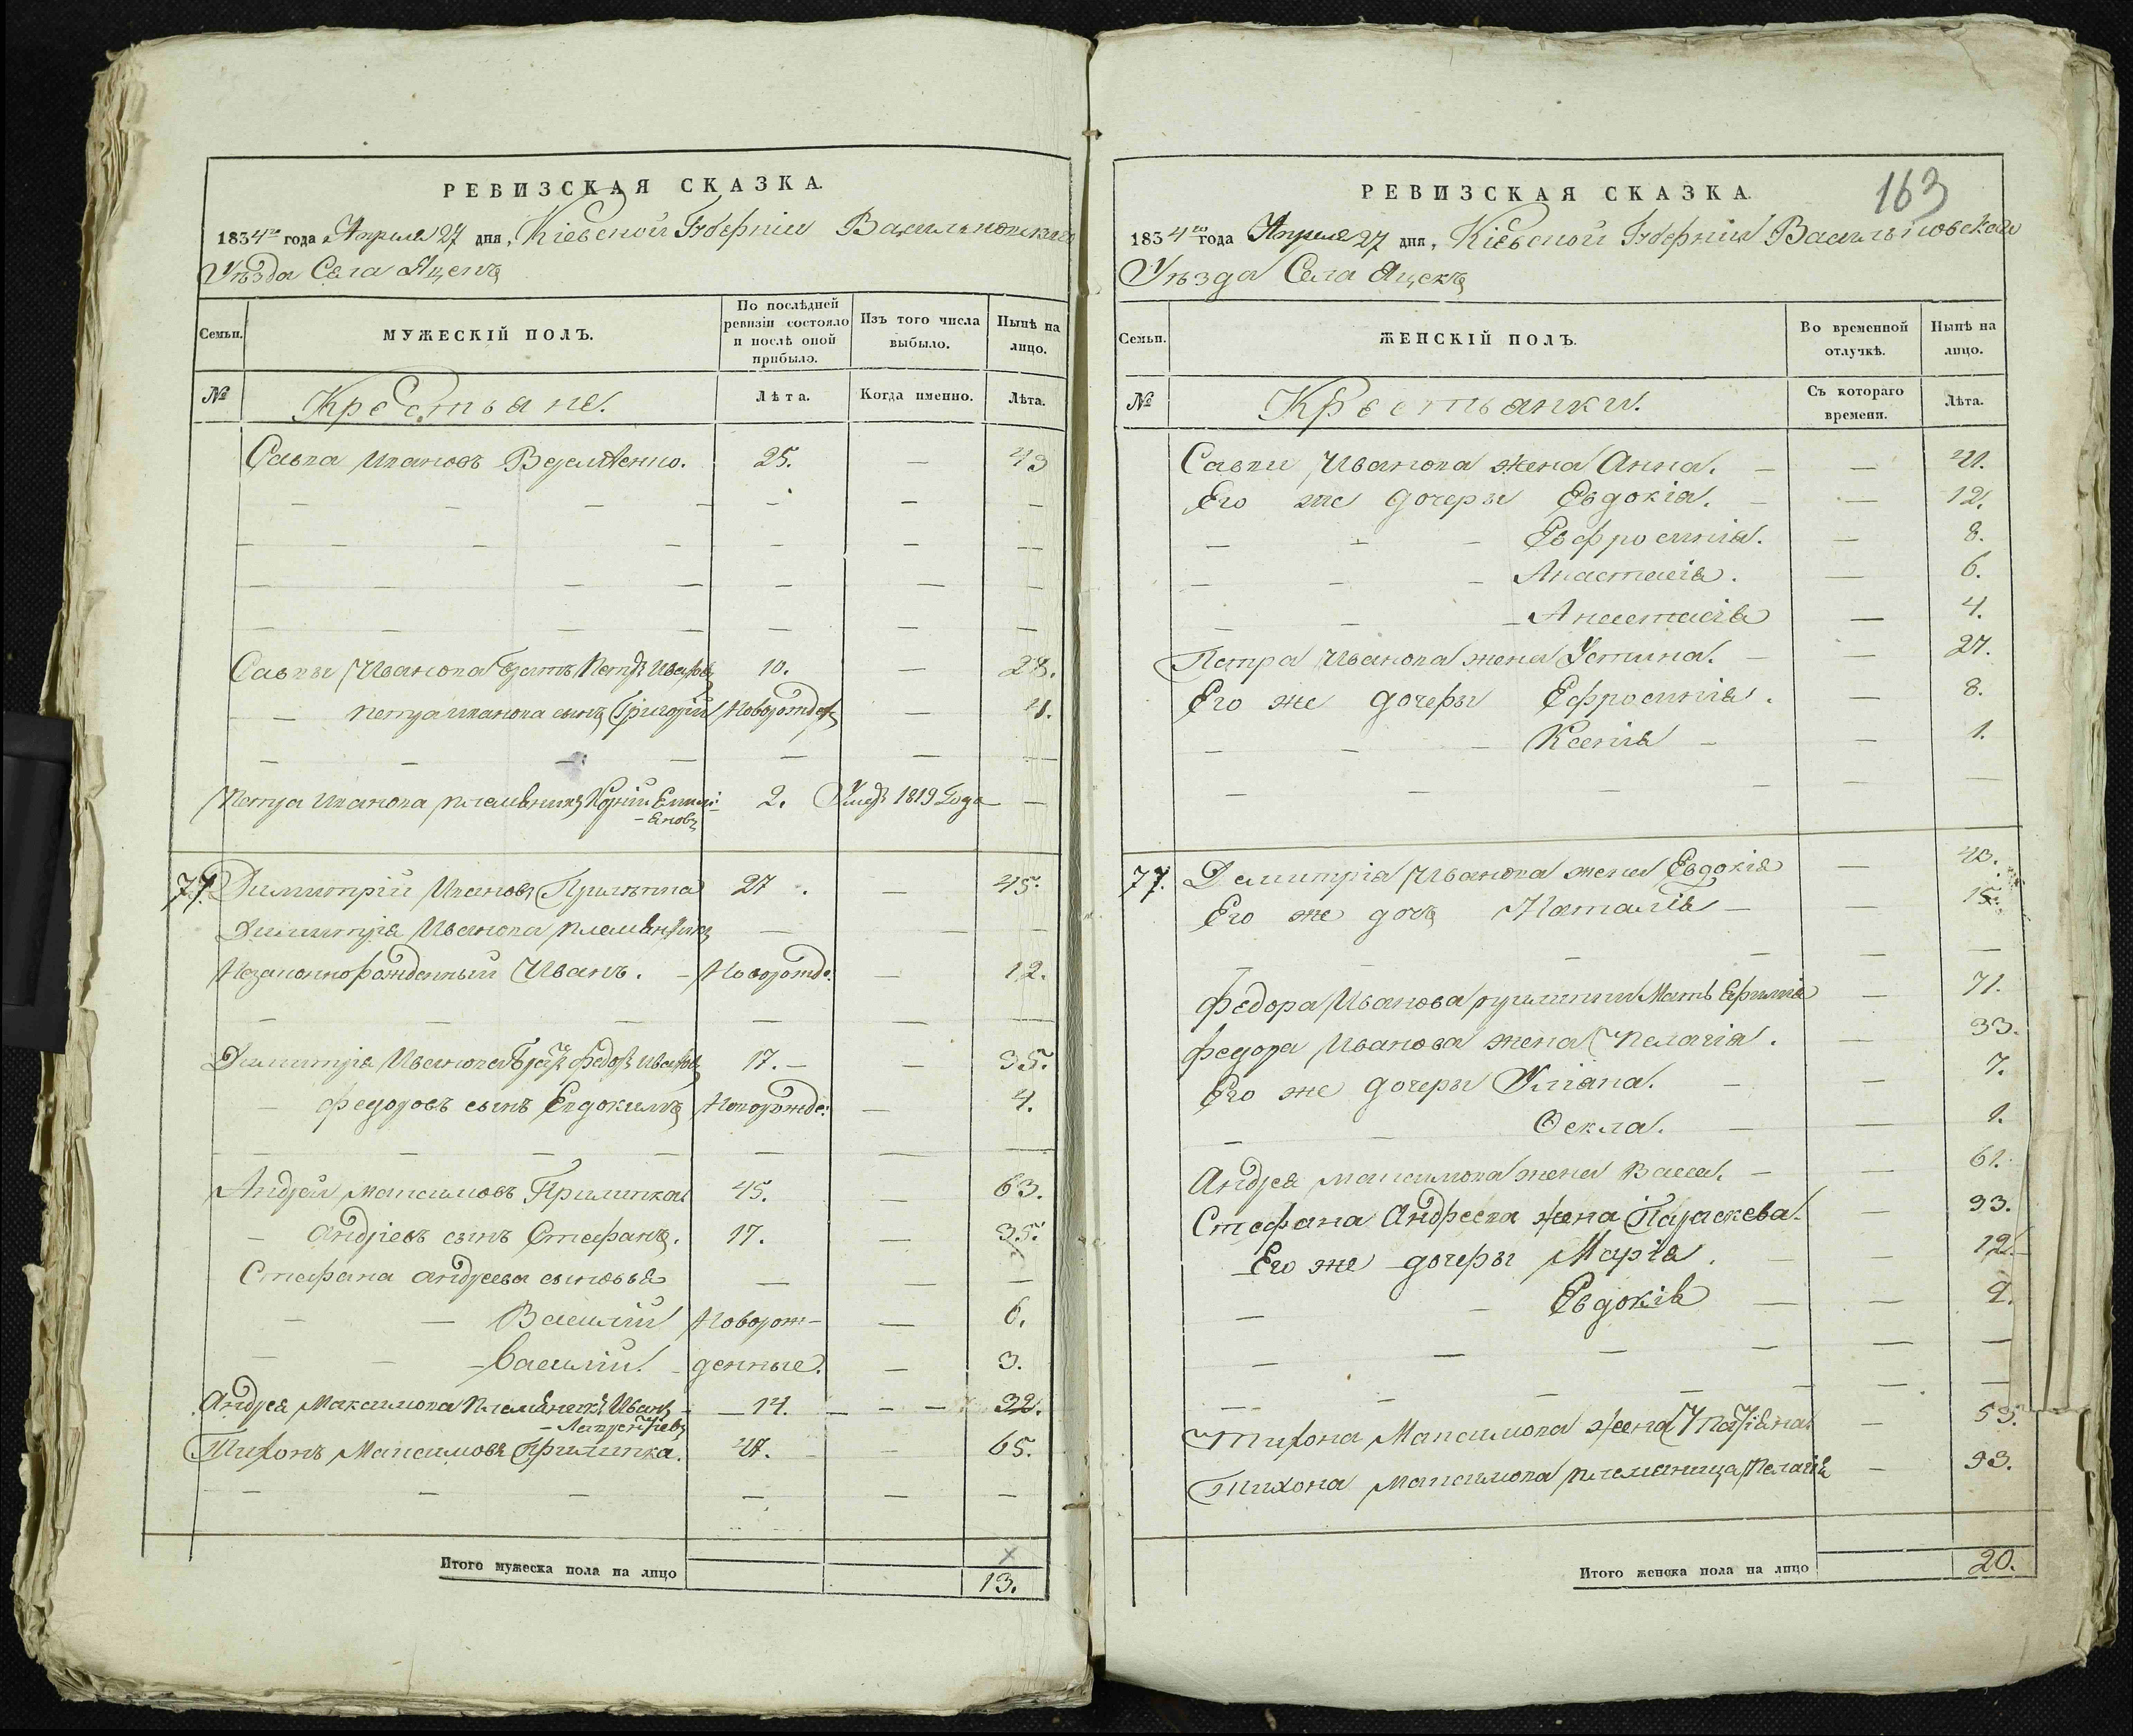 РЕВИЗСКАЯ СКАЗКА.
1834го года Апреля 27 дня, Кіевской Губерніи Васильковскаго
Уѣзда Села Яцекъ
Семьи.
МУЖЕСКІЙ ПОЛЪ.
По послѣдней ревизіи состояло и послѣ оной прибыло.
Изъ того числа выбыло.
Нынѣ на лицо.
№
Крестьяне.
Лѣта.
Когда именно.
Лѣта.
Савка Ивановъ 25. — 43
— — — — — — —
— — — — — — —
— — — — — — —
— — — — — — —
Савки Иванова братъ Петръ Ивановъ 10. — 28.
— — Петра Иванова сынъ Григорій Новорожден — 4.
— — — — — — —
Петра Иванова племянникъ Корній Емилі- 2. Умеръ 1819 Года —
-ановъ
77. Димитрій Ивановъ Прилипка 27. — 45.
Димитрія Иванова племянникъ — — —
Незаконнорожденный Иванъ. — Новорожде: — 12.
— — — — — —
Димитрія Иванова братъ Федоръ Ивановъ 17. — — 35.
— Федоровъ сынъ Евдокимъ Новорожде: — 4.
— — — — — — —
Андрей Максимовъ Прилипка 45. — 63.
— Андреевъ сынъ Стефанъ. 17. — 35.
Стефана Андреева сыновья — — —
— — Василій Новорож- — 6.
— — — Василій. денные. — 3.
Андрея Максимова Племянникъ Иванъ — 14. — — — 32.
Тихонъ Максимовъ Прилипка. 47. — 65.
— — — — — — —
Итого мужеска пола на лицо
13.
163
РЕВИЗСКАЯ СКАЗКА.
1834го года Апреля 27 дня, Кіевской Губерніи Васильковскаго
Уѣзда Села Яцекъ
Семьи.
ЖЕНСКІЙ ПОЛЪ.
Во временной отлучкѣ.
Нынѣ на лицо.
№
Крестьянки.
Съ котораго времени.
Лѣта.
Савки Иванова жена Анна. — — 41.
Его же дочеры Евдокія. — — 12.
— — — Евфросинія. — 8.
— — — Анастасія. — 6.
— — — Анастасія — 4.
Петра Иванова жена Устина. — — 27.
Его же дочеры Ефросинія. — 8.
— — — Ксенія — — 1.
— — — — — —
77. Димитрія Иванова жена Евдокія — 40.
Его же дочь Наталія — — 15.
— — — — — —
Федора Иванова прилипки Мать Ефимія — 71.
Федора Иванова жена Пелагія. — 33.
Его же дочеры Уліана. — — 7.
— — Ѳекла. — — 1.
Андрея Максимова жена Васса. — — 61.
Стефана Андреева жена Параскева. — 33.
Его же дочеры Марія. — — 12.
— — Евдокія — — 2.
— — — — — —
— — — — — —
Тихона Максимова жена Татіана — 53.
Тихона Максимова племяница Пелагія — 33.
Итого женска пола на лицо
20.